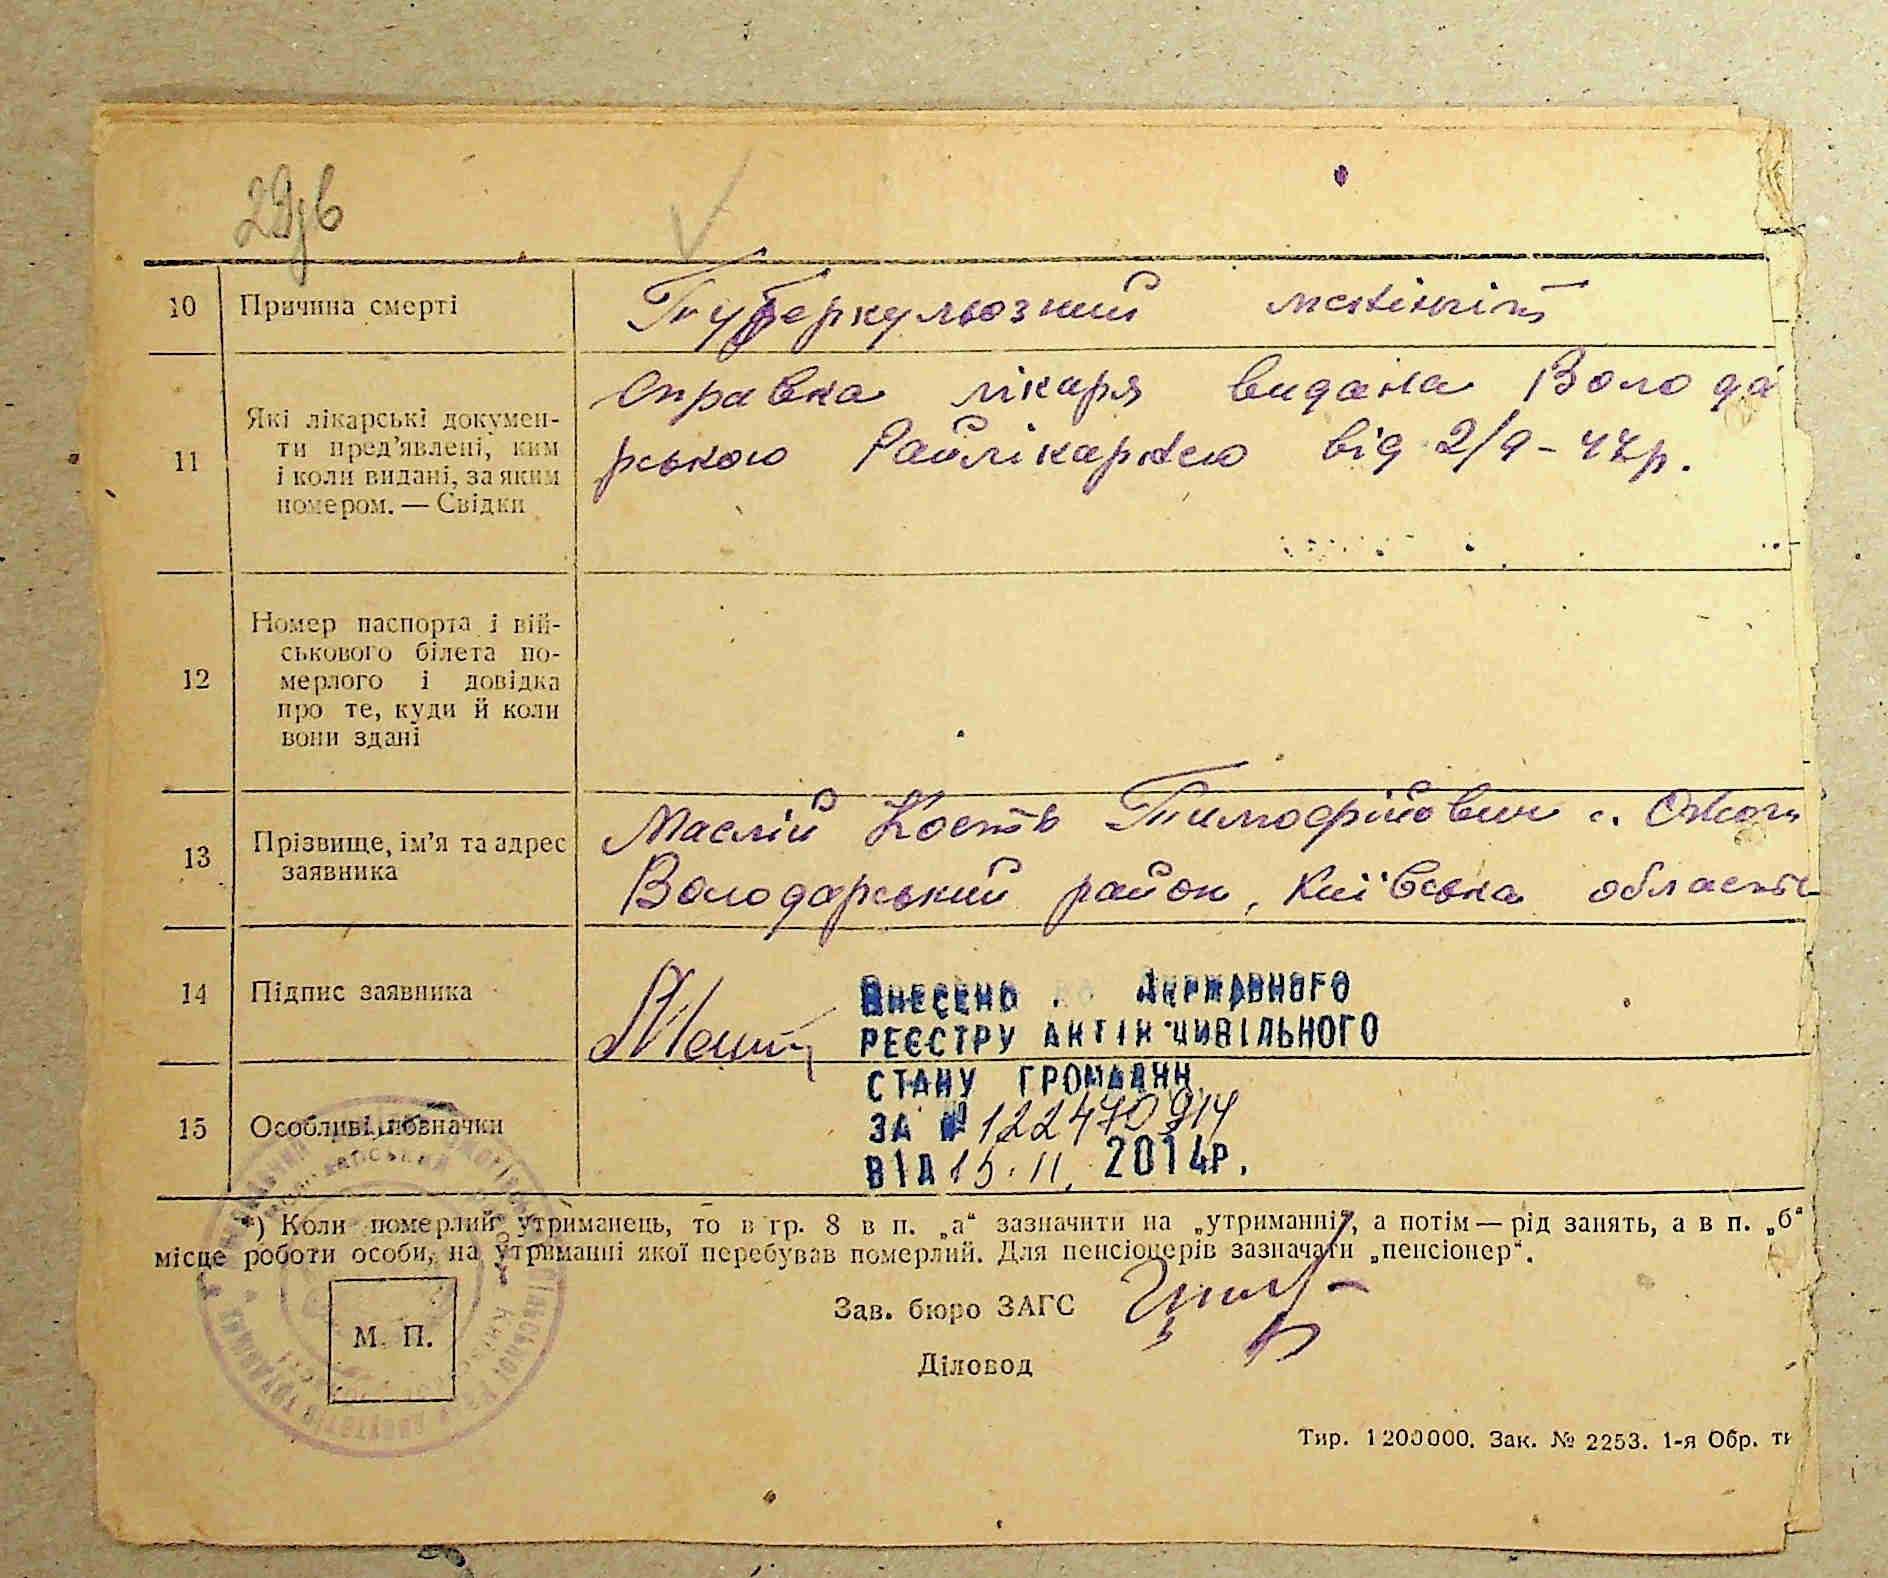 29зв
10 Причина смерті Туберкульозний менінгіт
11 Які лікарські докумен-
ти пред'явлені, ким
і коли видані, за яким
номером. — Свідки
Справка лікаря видана Волода
рською Райлікарнею від 2/9-47р.
12 Номер паспорта і вій-
ськового білета по-
мерлого і довідка
про те, куди й коли
вони здані
13 Прізвище, ім'я та адрес
заявника
Маслій Кость Тимофійович с.
Володарський район, Київська область
14 Підпис заявника
ВНЕСЕНО ДЕРЖАВНОГО
РЕЄСТРУ АКТІВ ЦИВІЛЬНОГО
СТАНУ ГРОМАДЯН
15 Особливі позначки
ЗА № 122470914
ВІД 15.11. 2014р.
*) Коли померлий утриманець, то в гр. 8 в п. „а“ зазначити на „утриманні“, а потім — рід занять, а в п. „б“
місце роботи особи, на утриманні якої перебував померлий. Для пенсіонерів зазначати „пенсіонер“.
Зав. бюро ЗАГС
М. П.
Діловод
Тир. 1200000. Зак. № 2253. 1-я Обр. ти